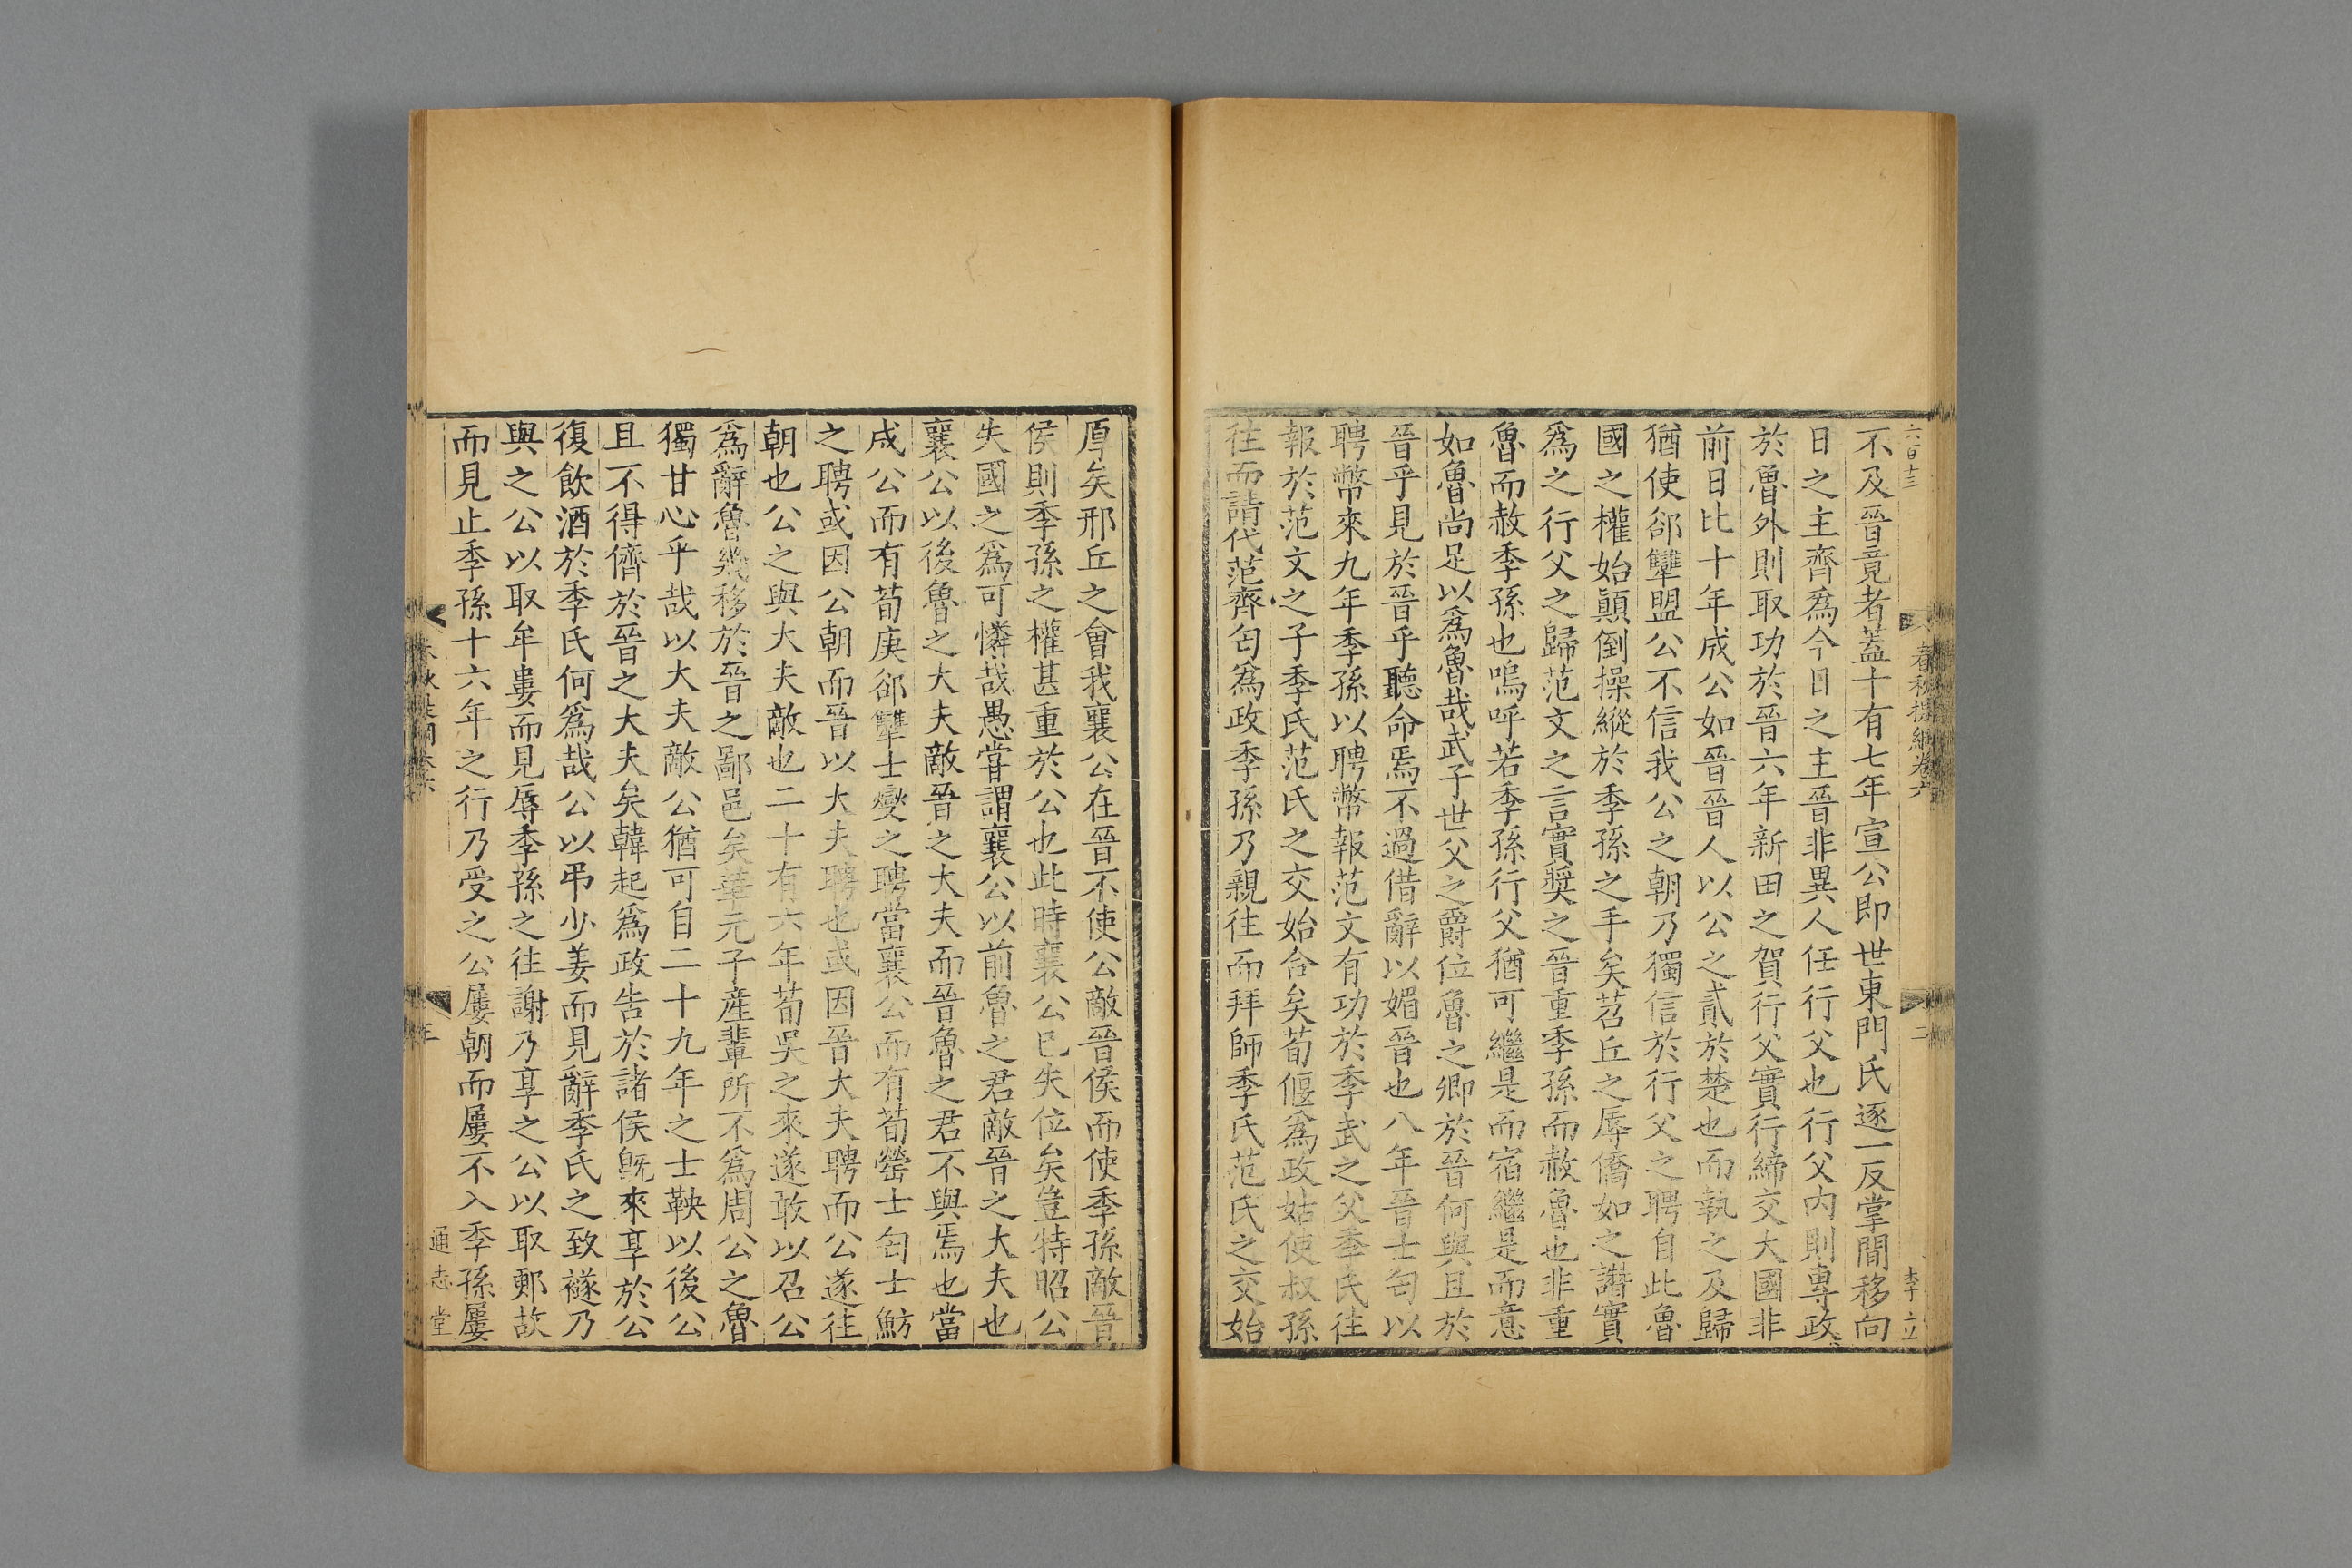 六百十三
春秋提綱卷六
二
李立
不及晉竟者蓋十有七年宣公即世東門氏逐一反掌間移向
日之主齊爲今日之主晉非異人任行父也行父内則專政
於魯外則取功於晉六年新田之賀行父實行締交大國非
前日比十年成公如晉晉人以公之貳於楚也而執之及歸
猶使郤犨盟公不信我公之朝乃獨信於行父之聘自此魯
國之權始顚倒操縱於季孫之手矣苕丘之辱僑如之譖實
爲之行父之歸范文之言實奬之晉重季孫而赦魯也非重
魯而赦季孫也嗚呼若季孫行父猶可繼是而宿繼是而意
如魯尚足以爲魯哉武子世父之爵位魯之卿於晉何與且於
晉乎見於晉乎聽命焉不過借辭以媚晉也八年晉士匄以
聘幣來九年季孫以聘幣報范文有功於季武之父季氏往
報於范文之子季氏范氏之交始合矣荀偃爲政姑使叔孫
往而請代范齊匄爲政季孫乃親往而拜師季氏范氏之交始
厚矣邢丘之會我襄公在晉不使公敵晉侯而使季孫敵晉
侯則季孫之權甚重於公也此時襄公已失位矣豈特昭公
失國之爲可憐哉愚嘗謂襄公以前魯之君敵晉之大夫也
襄公以後魯之大夫敵晉之大夫而晉魯之君不與焉也當
成公而有荀庚郤犨士燮之聘當襄公而有荀罃士匄士魴
之聘或因公朝而晉以大夫聘也或因晉大夫聘而公遂往
朝也公之與大夫敵也二十有六年荀吳之來遂敢以召公
爲辭魯幾移於晉之鄙邑矣華元子產輩所不爲周公之魯
獨甘心乎哉以大夫敵公猶可自二十九年之士鞅以後公
且不得儕於晉之大夫矣韓起爲政告於諸侯旣來享於公
復飲酒於季氏何爲哉公以弔少姜而見辭季氏之致襚乃
與之公以取牟婁而見辱季孫之往謝乃享之公以取鄆故
而見止季孫十六年之行乃受之公屢朝而屢不入季孫屢
通志堂